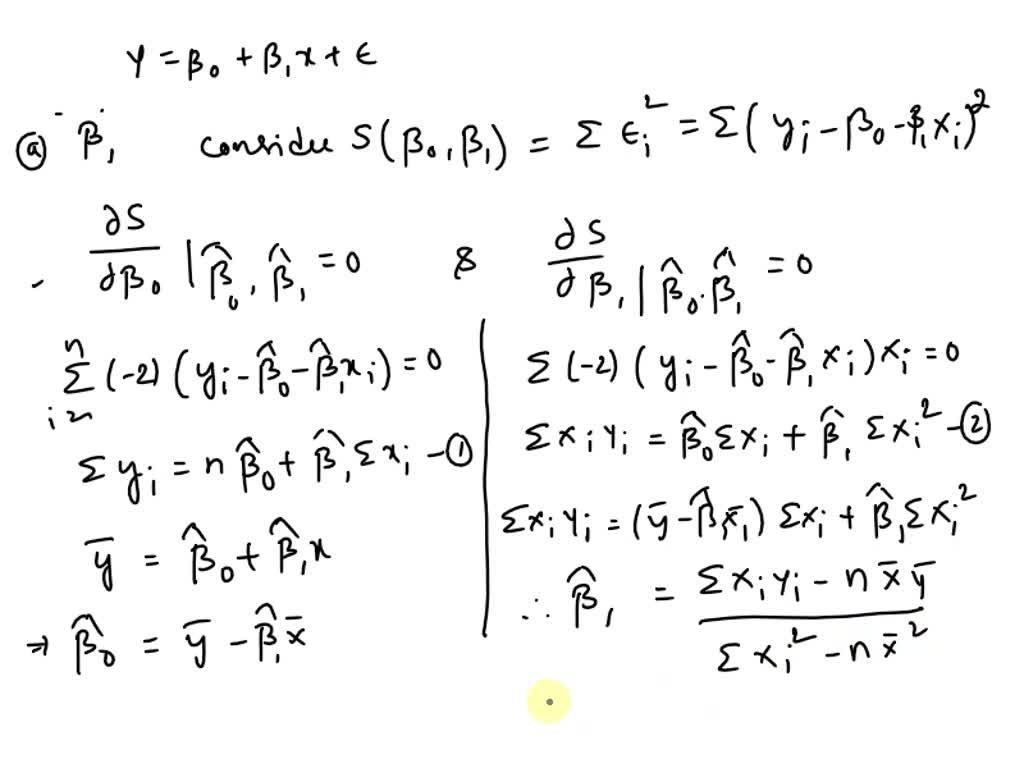 Y = β₀ + β₁x + ϵ
ⓐ β₁ consider S(β₀, β₁) = Σ ϵᵢ² = Σ(yᵢ - β₀ - β₁xᵢ)²
∂S/∂β₀ | β̂₀, β̂₁ = 0 & ∂S/∂β₁ | β̂₀, β̂₁ = 0
n
Σ (-2) (yᵢ - β̂₀ - β̂₁xᵢ) = 0
i =
Σ yᵢ = n β̂₀ + β̂₁ Σ xᵢ - ①
ȳ = β̂₀ + β̂₁x
⇒ β̂₀ = ȳ - β̂₁x̄
Σ (-2) (yᵢ - β̂₀ - β̂₁ xᵢ) xᵢ = 0
Σ xᵢ yᵢ = β̂₀ Σxᵢ + β̂₁ Σxᵢ² - ②
Σxᵢ yᵢ = (ȳ - β̂₁x̄₁) Σxᵢ + β̂₁ Σxᵢ²
∴ β̂₁ = (Σ xᵢ yᵢ - n x̄ ȳ) / (Σ xᵢ² - n x̄²)